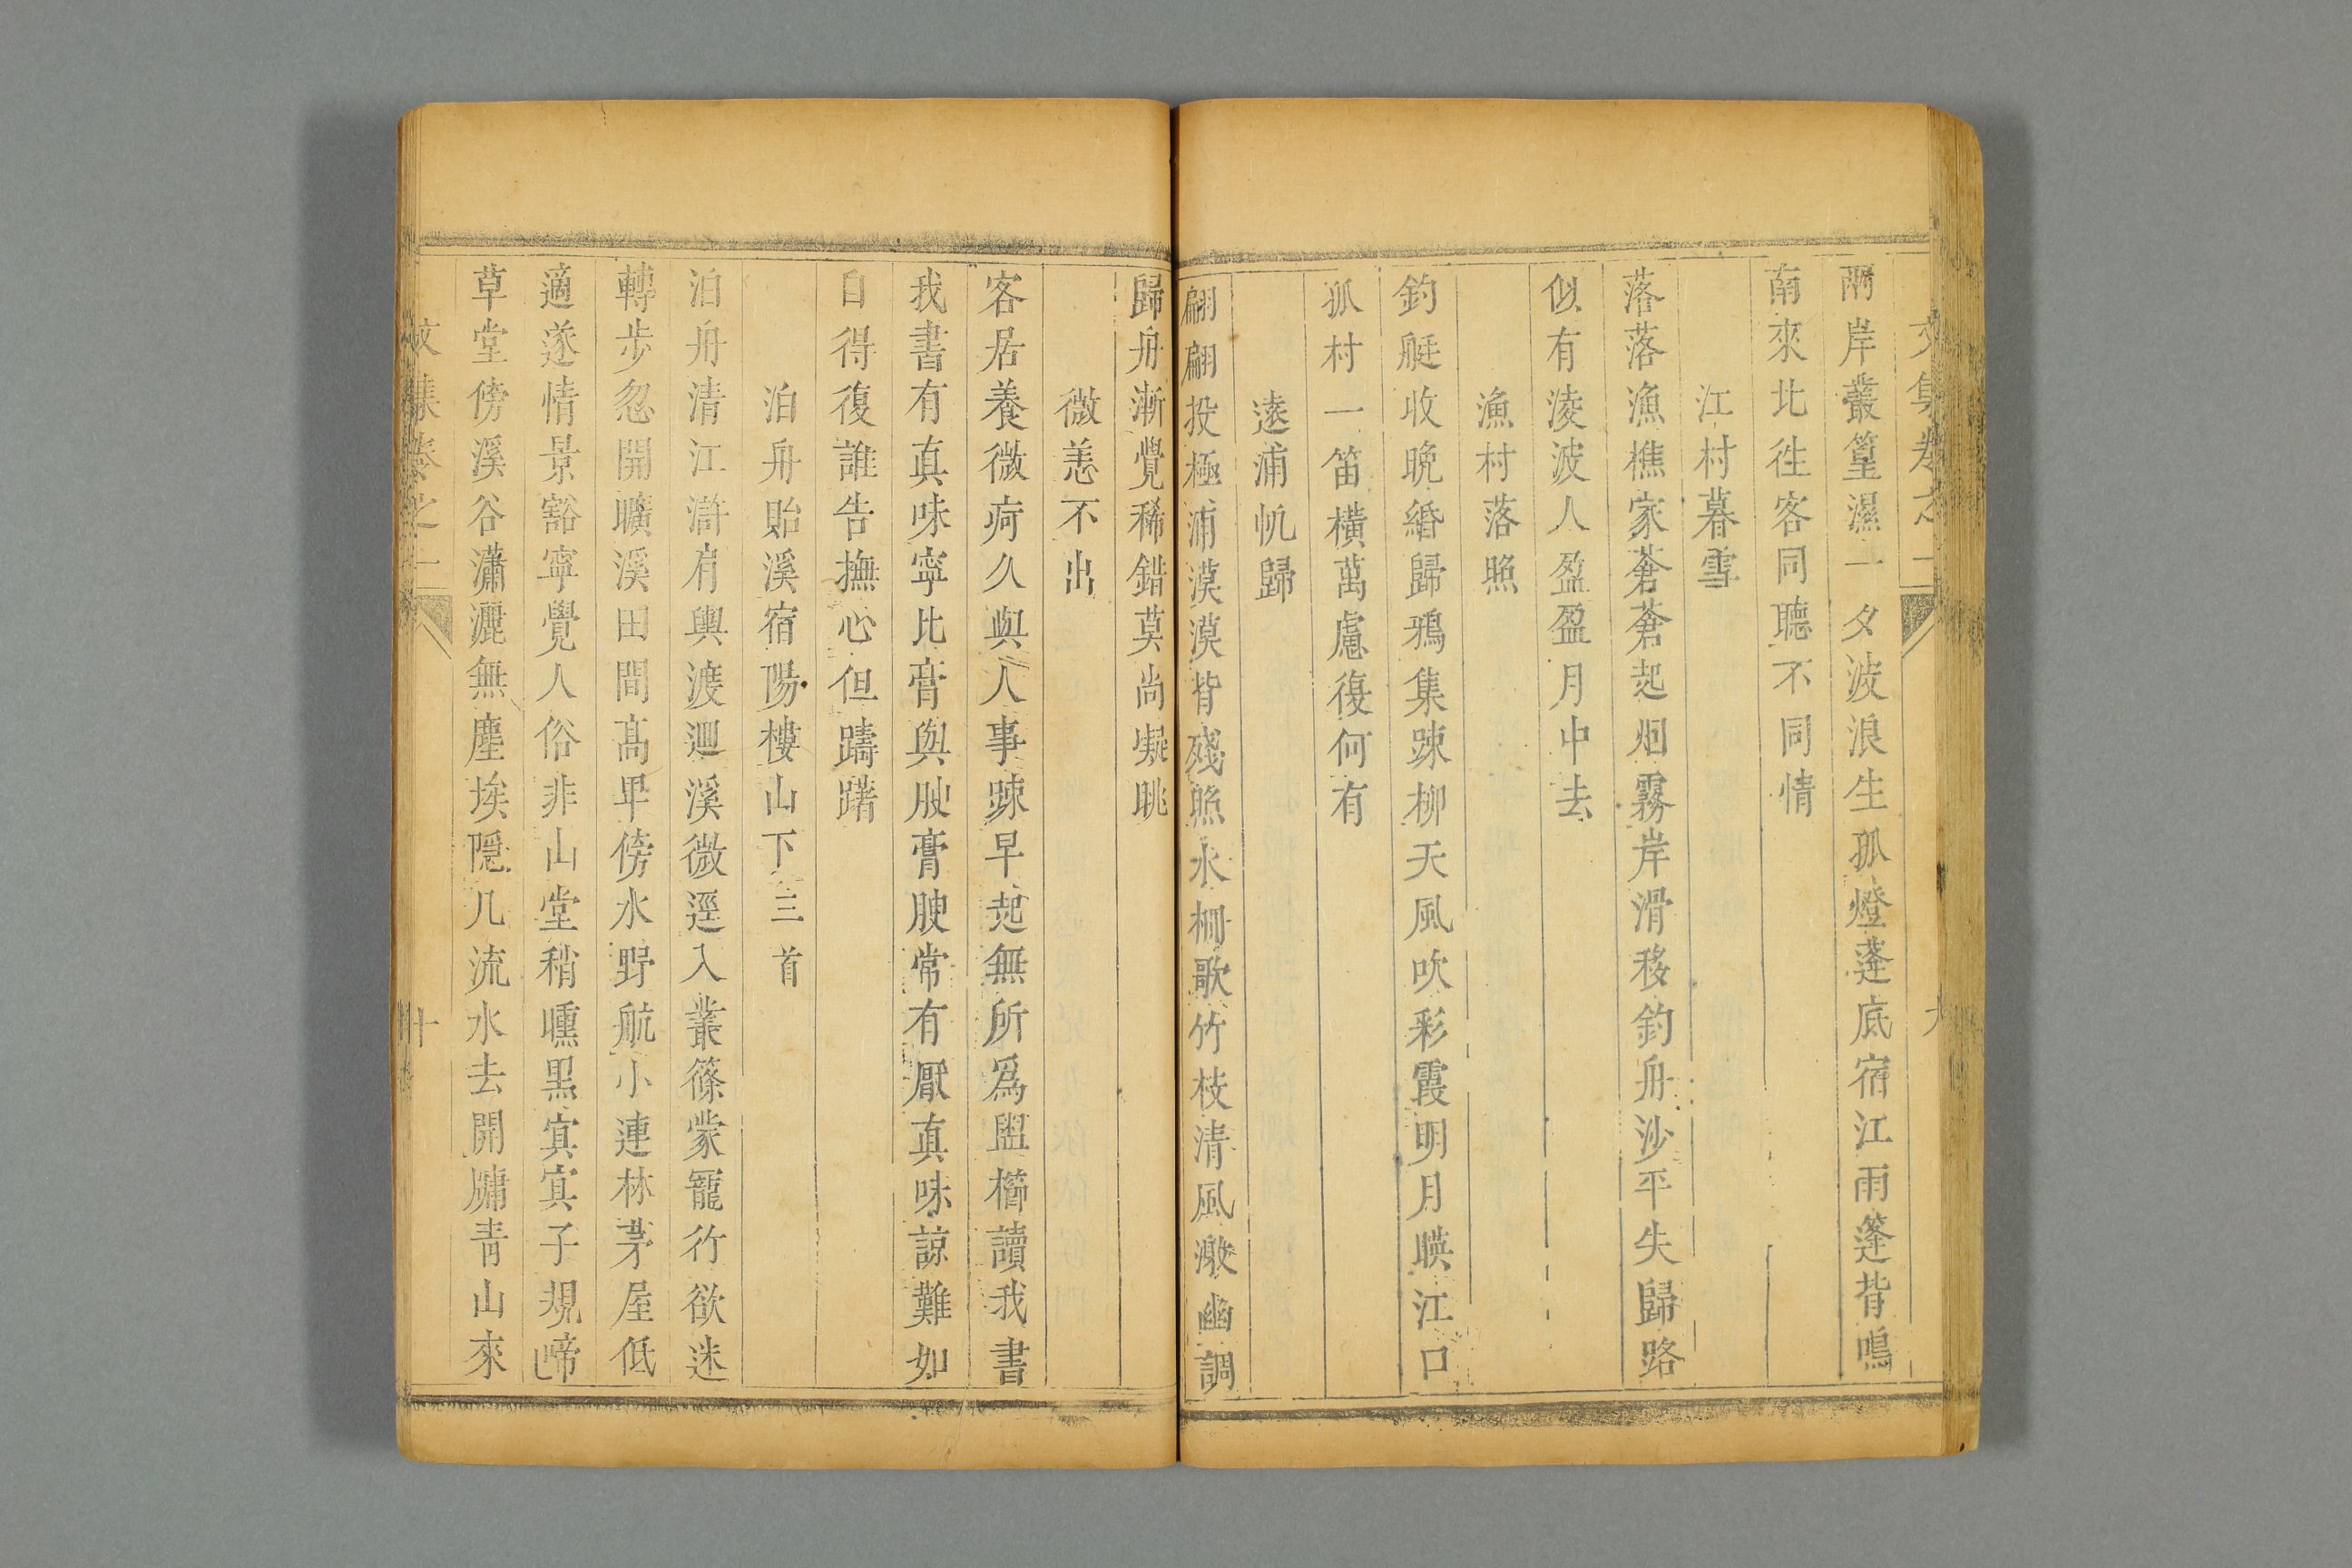 文集卷之二
兩岸叢篁濕一夕波浪生孤燈蓬底宿江雨篷背鳴
南來北徃客同聽不同情
江村暮雪
落落漁樵家蒼蒼起烟霧岸滑移釣舟沙平失歸路
似有淩波人盈盈月中去
漁村落照
釣艇收晚緡歸鴉集踈柳天風吹彩霞明月暎江口
孤村一笛橫萬慮復何有
遠浦帆歸
翩翩投極浦漠漠背殘照永栅歌竹枝清風激幽調
歸舟漸覺稀錯莫尚凝眺
微恙不出
客居養微疴久與人事踈早起無所爲盥櫛讀我書
我書有真味寧比膏與腴膏腴常有厭真味諒難如
自得復誰告撫心但躊躇
泊舟貽溪宿陽樓山下三首
泊舟清江滸肩輿渡迴溪微逕入叢篠蒙寵行欲迷
轉步忽開曠溪田間高卑傍水野航小連林茅屋低
適遂情景豁寧覺人俗非山堂稍曛黑寘寘子規啼
草堂傍溪谷瀟灑無塵埃隠几流水去開牖青山來
文集卷之二
十